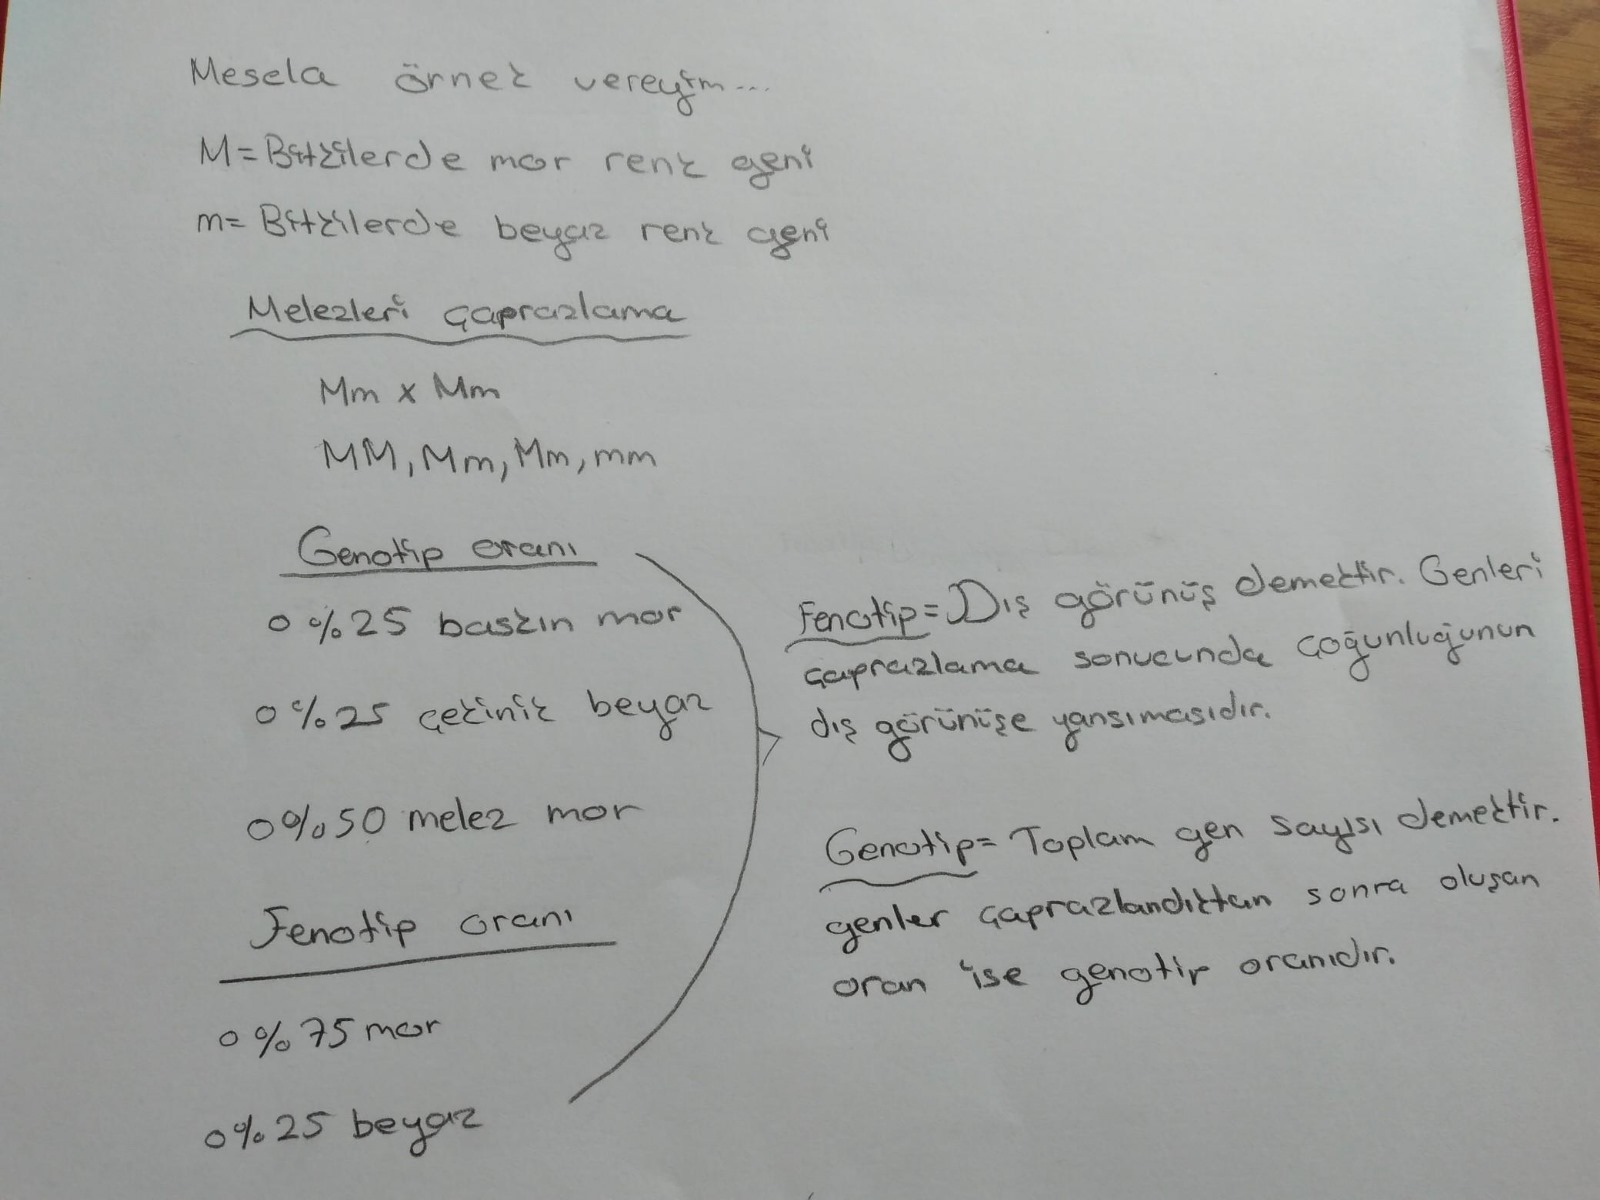 Mesela örnek vereyim...
M=Bitkilerde mor renk geni
m=Bitkilerde beyaz renk geni
Melezleri çaprazlama
Mm x Mm
MM, Mm, Mm, mm
Genotip oranı
o %25 baskın mor
o %25 çekinik beyaz
o %50 melez mor
Fenotip oranı
o %75 mor
o %25 beyaz
Fenotip=Dış görünüş demektir. Genleri
çaprazlama sonucunda çoğunluğunun
dış görünüşe yansımasıdır.
Genotip= Toplam gen sayısı demektir.
genler çaprazlandıktan sonra oluşan
oran ise genotip oranıdır.